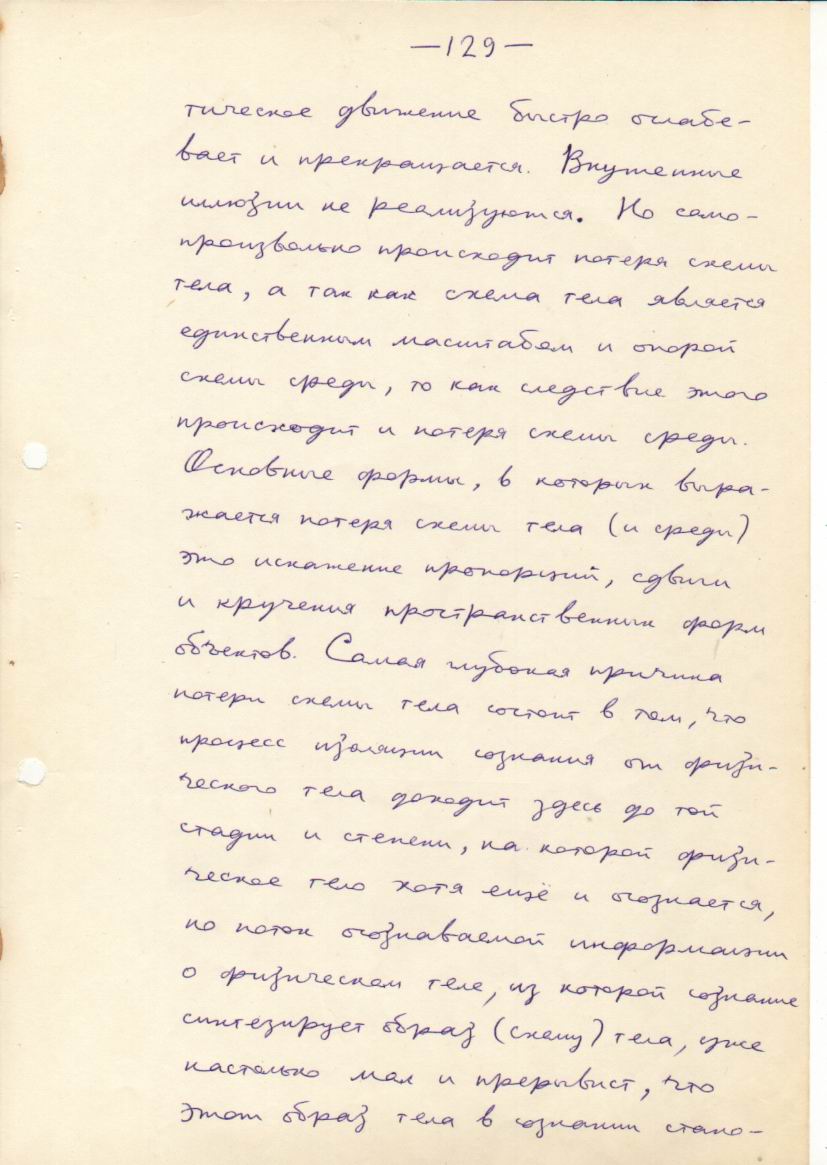 —129—
тическое движение быстро ослабе-
вает и прекращается. Внушенные
иллюзии не реализуются. Но само-
произвольно происходит потеря схемы
тела, а так как схема тела является
единственным масштабом и опорой
схемы среды, то как следствие этого
происходит и потеря схемы среды.
Основные формы, в которых выра-
жается потеря схемы тела (и среды)
это искажение пропорций, сдвиги
и кручения пространственных форм
объектов. Самая глубокая причина
потери схемы тела состоит в том, что
процесс изоляции сознания от физи-
ческого тела доходит здесь до той
стадии и степени, на которой физи-
ческое тело хотя ещё и осознается,
но поток осознаваемой информации
о физическом теле, из которой сознание
синтезирует образ (схему) тела, уже
настолько мал и прерывист, что
этот образ тела в сознании стано-